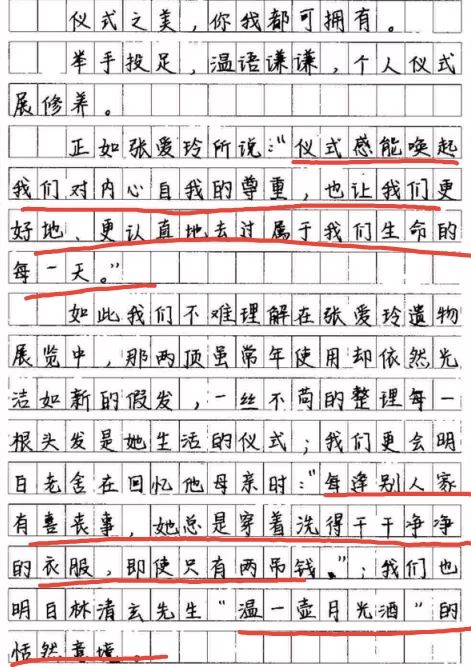 仪式之美，你我都可拥有。
举手投足，温语谦谦，个人仪式
展修养。
正如张爱玲所说：“仪式感能唤起
我们对内心自我的尊重，也让我们更
好地、更认真地去过属于我们生命的
每一天。”
如此我们不难理解在张爱玲遗物
展览中，那两顶虽常年使用却依然光
洁如新的假发，一丝不苟的整理每一
根头发是她生活的仪式；我们更会明
白老舍在回忆他母亲时：“每逢别人家
有喜丧事，她总是穿着洗得干干净净
的衣服，即使只有两吊钱。”；我们也
明白林清玄先生“温一壶月光酒”的
恬然意境。